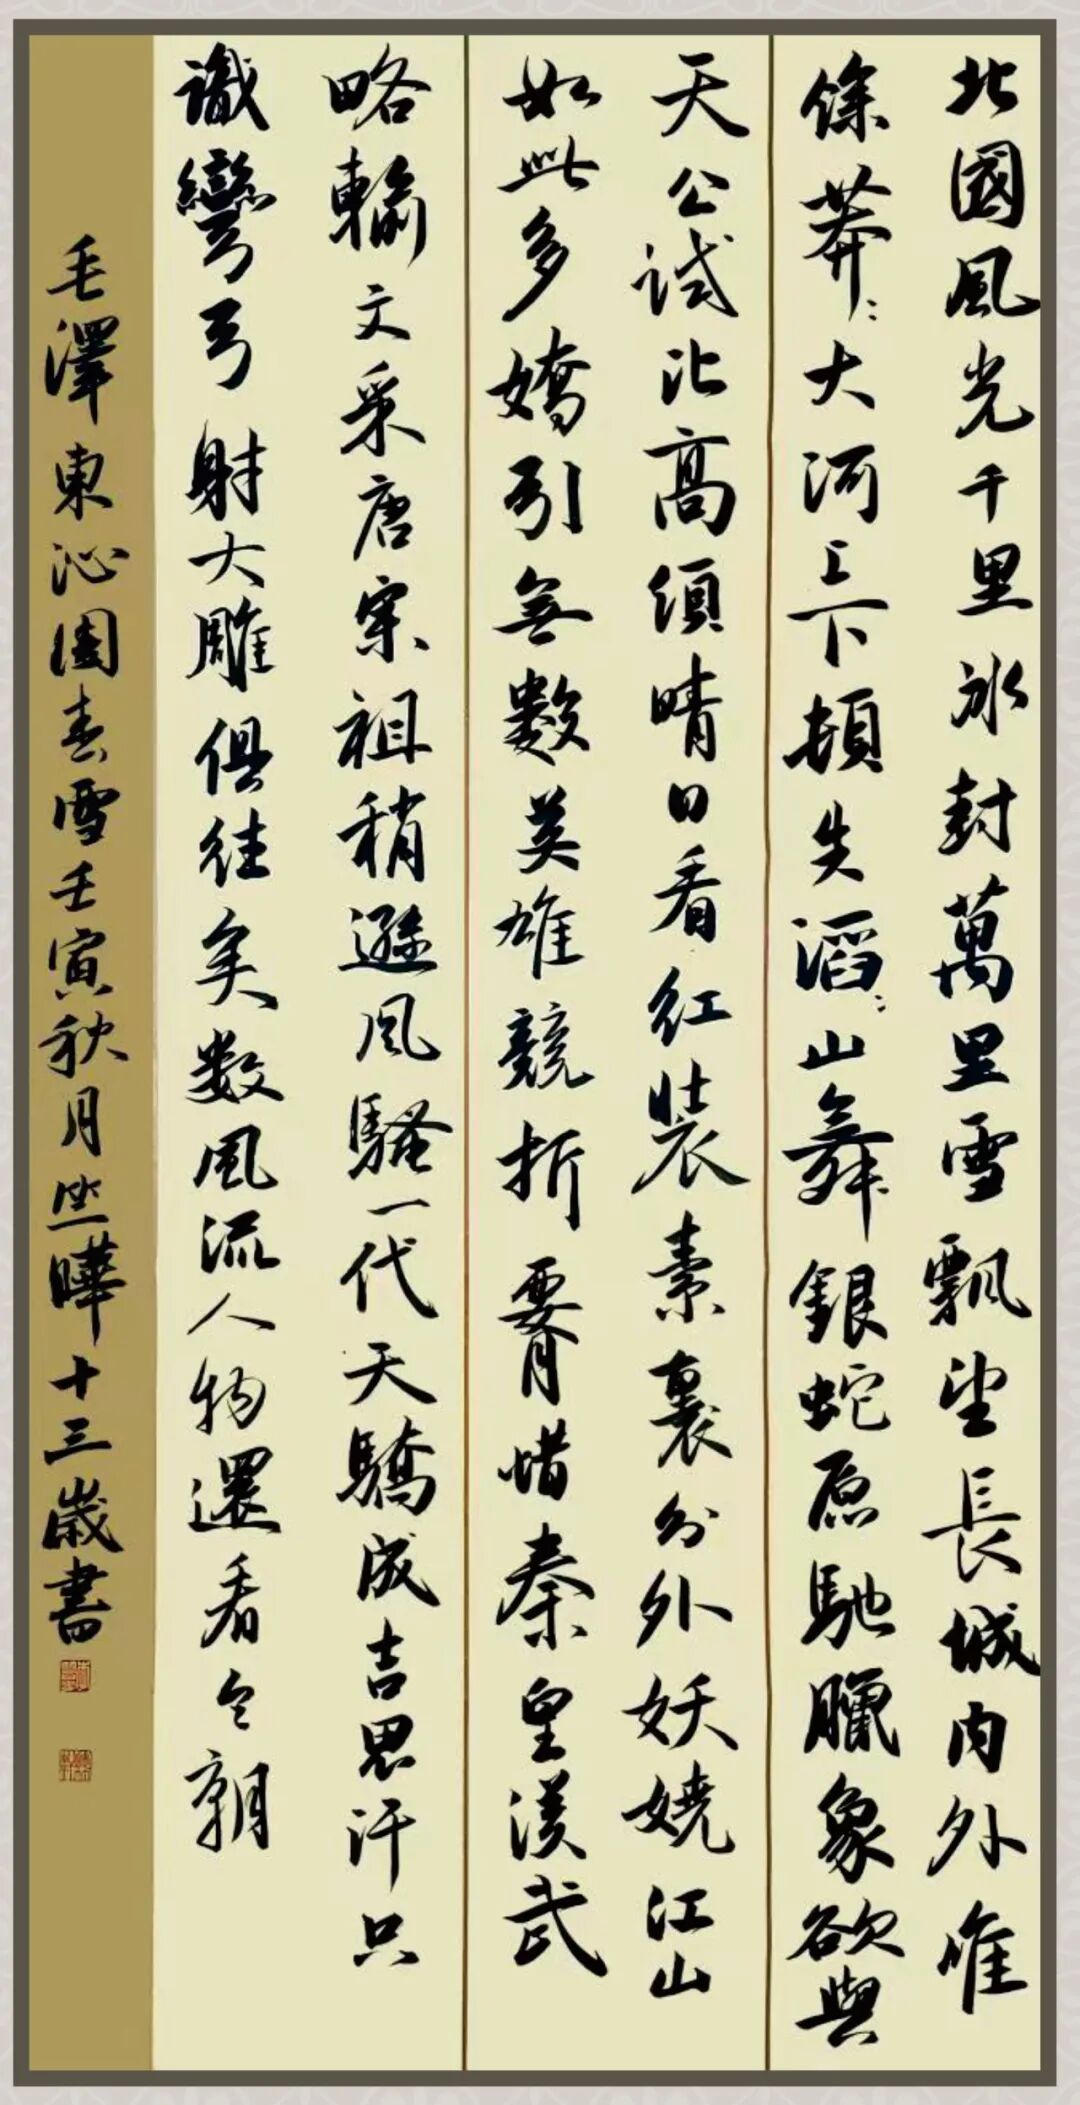 北國風光千里冰封萬里雪飄望長城内外唯
馀莽〻大河上下頓失滔〻山舞銀蛇原馳臘象欲與
天公試比高須晴日看红裝素裹分外妖嬈江山
如此多嬌引無數英雄競折腰惜秦皇漢武
略輸文采唐宋祖稍遜风騷一代天驕成吉思汗只
識彎弓射大雕俱往矣数風流人物還看今朝
毛澤東沁園春雪壬寅秋月曄十三歲書